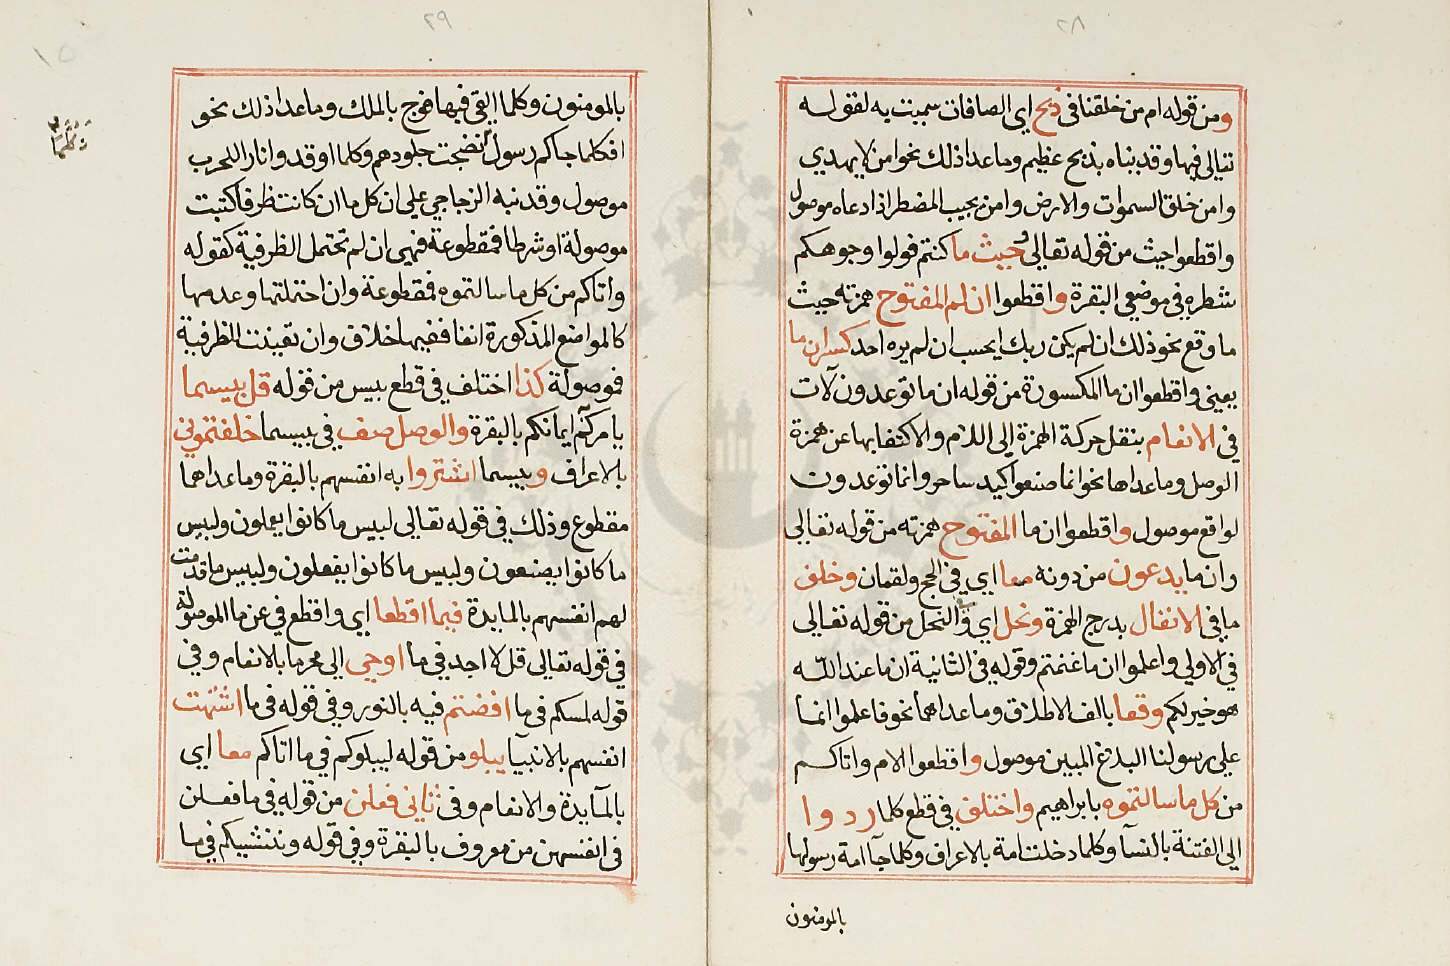 ٢٨
ومن قوله ام من خلقنا في ذبح اي الصافات سميت به لقوله
تعالى فيها وفديناه بذبح عظيم وما عدا ذلك نحو امن لا يهدي
وامن خلق السموات والارض وامن يجيب المضطر اذا دعاه موصول
واقطعوا حيث من قوله تعالى وحيث ما كنتم فولوا وجوهكم
شطره في موضعي البقرة واقطعوا ان لم المفتوح همزته حيث
ما وقع نحو ذلك ان لم يكن ربك ايحسب ان لم يره احد كسر ان ما
يعني واقطعوا ان ما المكسورة من قوله ان ما توعدون لآت
في الانعام بنقل حركة الهمزة الى اللام والاكتفا بها عن همزة
الوصل وما عداها نحو انما صنعوا كيد ساحر وانما توعدون
لواقع موصول واقطعوا ان ما المفتوح همزته من قوله تعالى
وان ما يدعون من دونه معا اي في الحج ولقمان وخلف
ما في الانفال بدرج الهمزة ونحل اي والنحل من قوله تعالى
في الاولي واعلموا ان ما غنمتم وقوله في الثانية ان ما عند الله
هو خير لكم وقعا بالف الاطلاق وما عداهما نحو فاعلموا انما
على رسولنا البلاغ المبين موصول واقطعوا لام واتاكم
من كل ما سالتموه بابراهيم واختلف في قطع كلما ردوا
الى الفتنة بالنسآ وكلما دخلت امة بالاعراف وكلما جآ امة رسولها
بالمومنون
٢٩
بالمومنون وكلما القي فيها فوج بالملك وما عدا ذلك نحو
افكلما جاكم رسول نضجت جلودهم وكلما اوقدوا نارا للحرب
موصول وقد نبه الزجاجي على ان كل ما ان كانت ظرفا كتبت
موصولة او شرطا فمقطوعة فهي ان لم تحتمل الظرفية كقوله
واتاكم من كل ما سالتموه فمقطوعة وان احتملتها وعدمها
كالمواضع المذكورة انفا ففيها خلاف وان تعينت للظرفية
فموصولة كذا اختلف في قطع بيس من قوله قل بيسما
يامركم ايمانكم بالبقرة والوصل صف في بيسما خلفتموني
بالاعراف وبيسما اشتروا به انفسهم بالبقرة وما عداهما
مقطوع وذلك في قوله تعالى لبيس ما كانوا يعملون ولبيس
ما كانوا يصنعون ولبيس ما كانوا يفعلون ولبيس ما قدمت
لهم انفسهم بالمايدة فيما اقطعا اي واقطع في عن ما الموصولة
في قوله تعالى قل لا اجد في ما اوحي الى محرما بالانعام وفي
قوله لمسكم في ما افضتم فيه بالنور وفي قوله في ما اشتهت
انفسهم بالانبيآ يبلو من قوله ليبلوكم في ما اتاكم معا اي
بالمآيدة والانعام وفي ثاني فعلن من قوله في ما فعلن
في انفسهن من معروف بالبقرة وفي قوله وننشيكم في ما